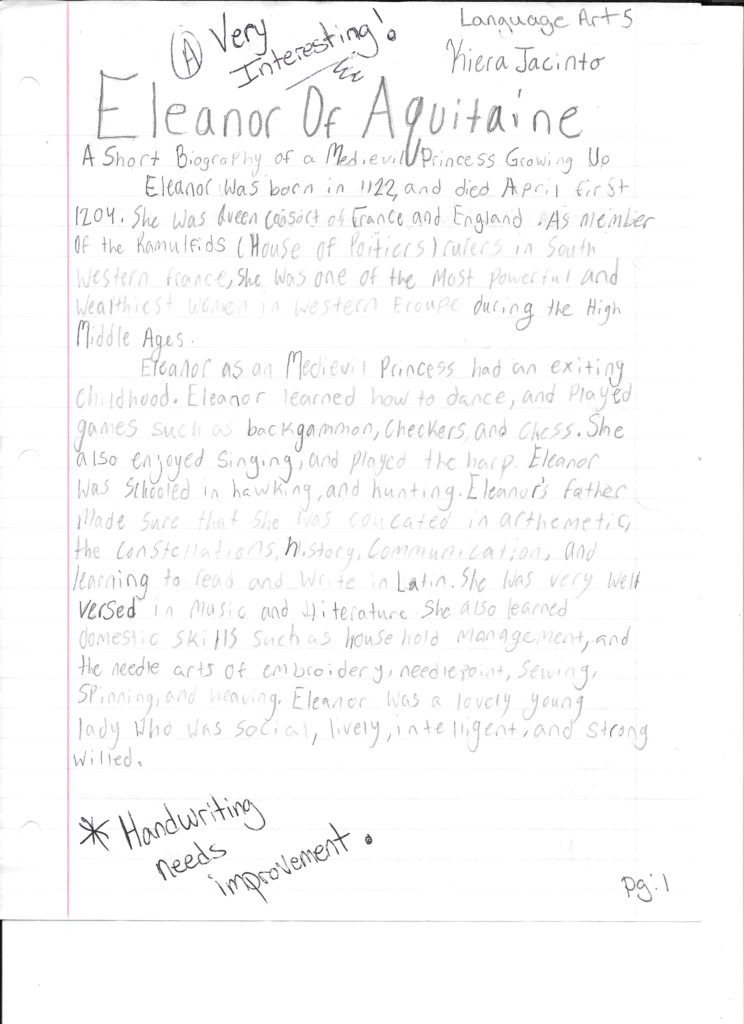 Language Arts
(A) Very
Interesting!
Kiera Jacinto
Eleanor Of Aquitaine
A Short Biography of a Medievil Princess Growing Up
Eleanor was born in 1122, and died April first
1204. She was Queen consort of France and England. As member
of the Ramulfids (House of Poitiers) rulers in South
western france, she was one of the most powerful and
wealthiest women in western Eroupe during the High
Middle Ages.
Eleanor as an Medievil Princess had an exiting
childhood. Eleanor learned how to dance, and played
games such as backgammon, checkers, and chess. She
also enjoyed singing, and played the harp. Eleanor
was schooled in hawking, and hunting. Eleanor's father
made sure that she was educated in arthemetic,
the constellations, history, communication, and
learning to read and write in Latin. She was very well
versed in music and literature. She also learned
domestic skills such as household management, and
the needle arts of embroidery, needlepoint, sewing,
spinning, and weaving. Eleanor was a lovely young
lady who was social, lively, intelligent, and strong
willed.
* Handwriting
needs
improvement.
pg:1